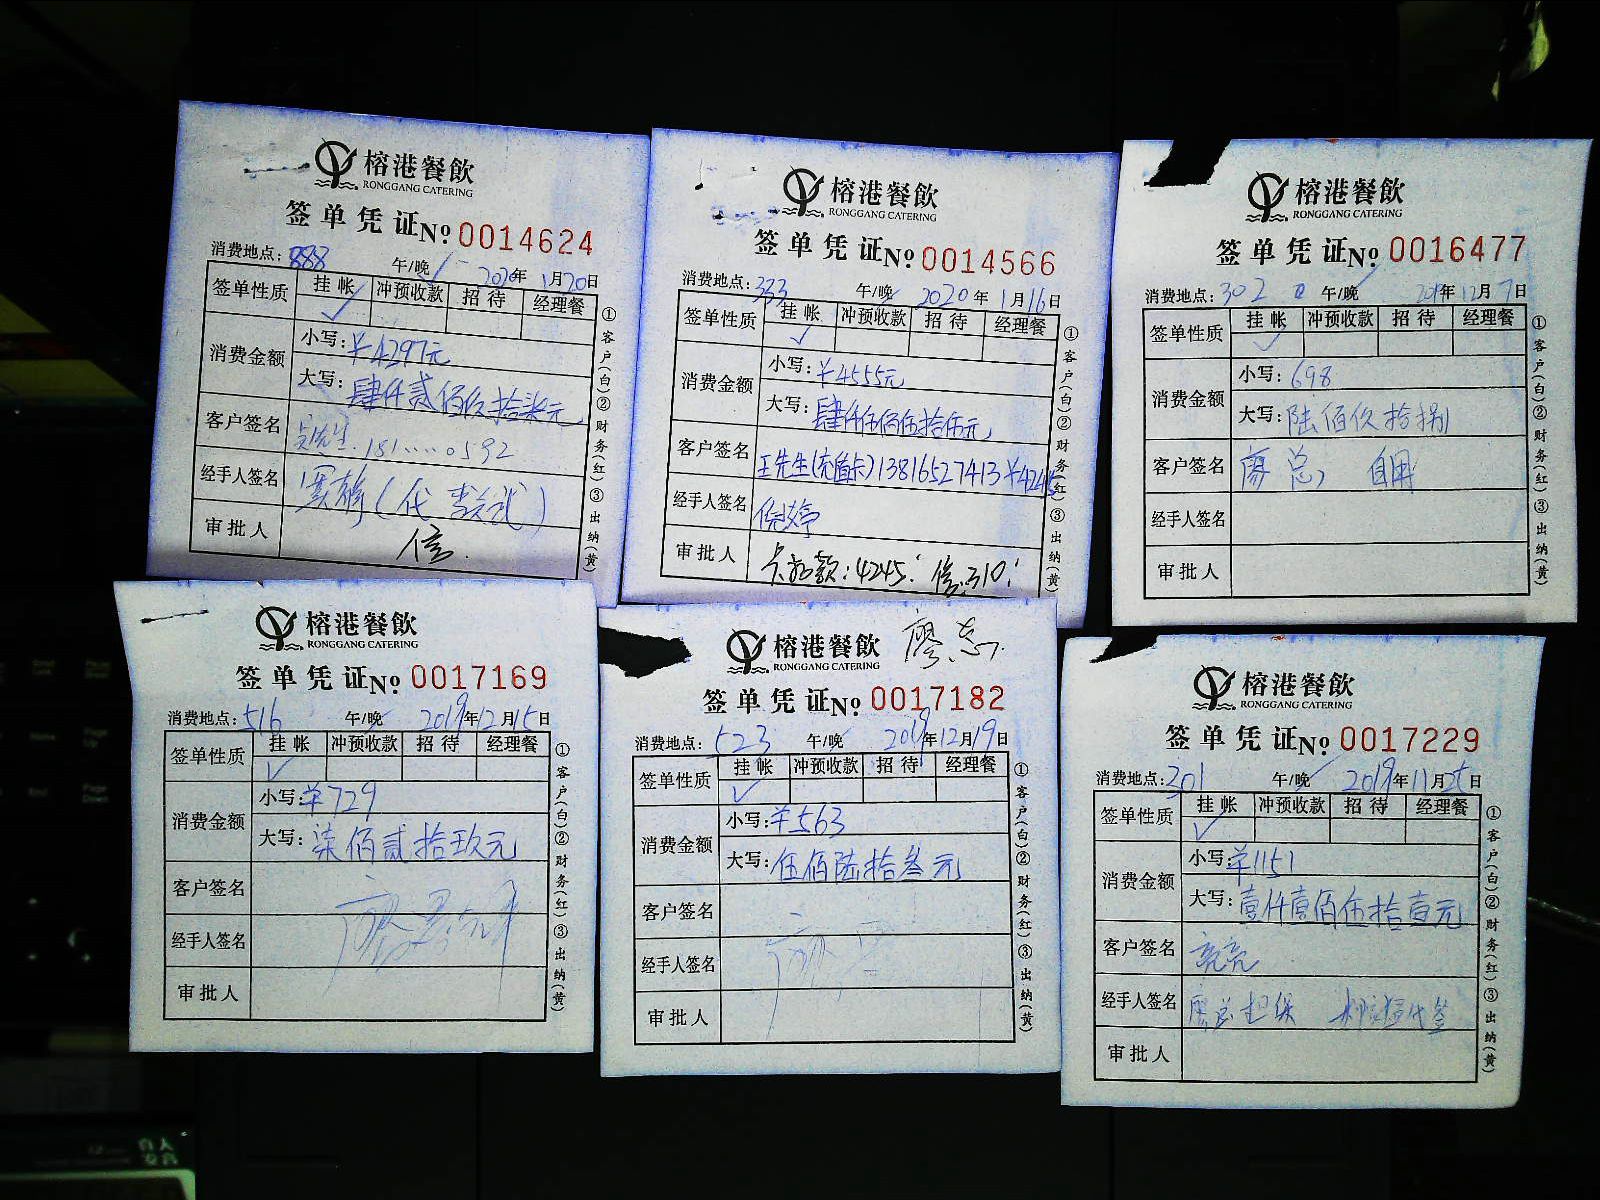 榕港餐飲
RONGGANG CATERING
签单凭证№ 0014624
消费地点: 888 午/晚 2020年1月20日
签单性质 挂帐 冲预收款 招待 经理餐
✓
消费金额 小写: ¥4297元
大写: 肆仟贰佰玖拾柒元
客户签名 181.....0592
经手人签名
审批人
①客户(白)②财务(红)③出纳(黄)
榕港餐飲
RONGGANG CATERING
签单凭证№ 0014566
消费地点: 333 午/晚 2020年1月16日
签单性质 挂帐 冲预收款 招待 经理餐
✓
消费金额 小写: ¥4555元
大写: 肆仟伍佰伍拾伍元
客户签名 王先生(充值卡)13816527413 ¥4245
经手人签名 倪婷
审批人 卡扣款:4245. 310.
①客户(白)②财务(红)③出纳(黄)
榕港餐飲
RONGGANG CATERING
签单凭证№ 0016477
消费地点: 302 午/晚 2019年12月7日
签单性质 挂帐 冲预收款 招待 经理餐
✓
消费金额 小写: 698
大写: 陆佰玖拾捌
客户签名 廖总 自用
经手人签名
审批人
①客户(白)②财务(红)③出纳(黄)
榕港餐飲
RONGGANG CATERING
签单凭证№ 0017169
消费地点: 516 午/晚 2019年12月15日
签单性质 挂帐 冲预收款 招待 经理餐
✓
消费金额 小写: ¥729
大写: 柒佰贰拾玖元
客户签名
经手人签名
审批人
①客户(白)②财务(红)③出纳(黄)
榕港餐飲 廖总
RONGGANG CATERING
签单凭证№ 0017182
消费地点: 523 午/晚 2019年12月19日
签单性质 挂帐 冲预收款 招待 经理餐
✓
消费金额 小写: ¥563
大写: 伍佰陆拾叁元
客户签名
经手人签名
审批人
①客户(白)②财务(红)③出纳(黄)
榕港餐飲
RONGGANG CATERING
签单凭证№ 0017229
消费地点: 301 午/晚 2019年11月25日
签单性质 挂帐 冲预收款 招待 经理餐
✓
消费金额 小写: ¥1151
大写: 壹仟壹佰伍拾壹元
客户签名 亮亮
经手人签名 廖总担保 代签
审批人
①客户(白)②财务(红)③出纳(黄)